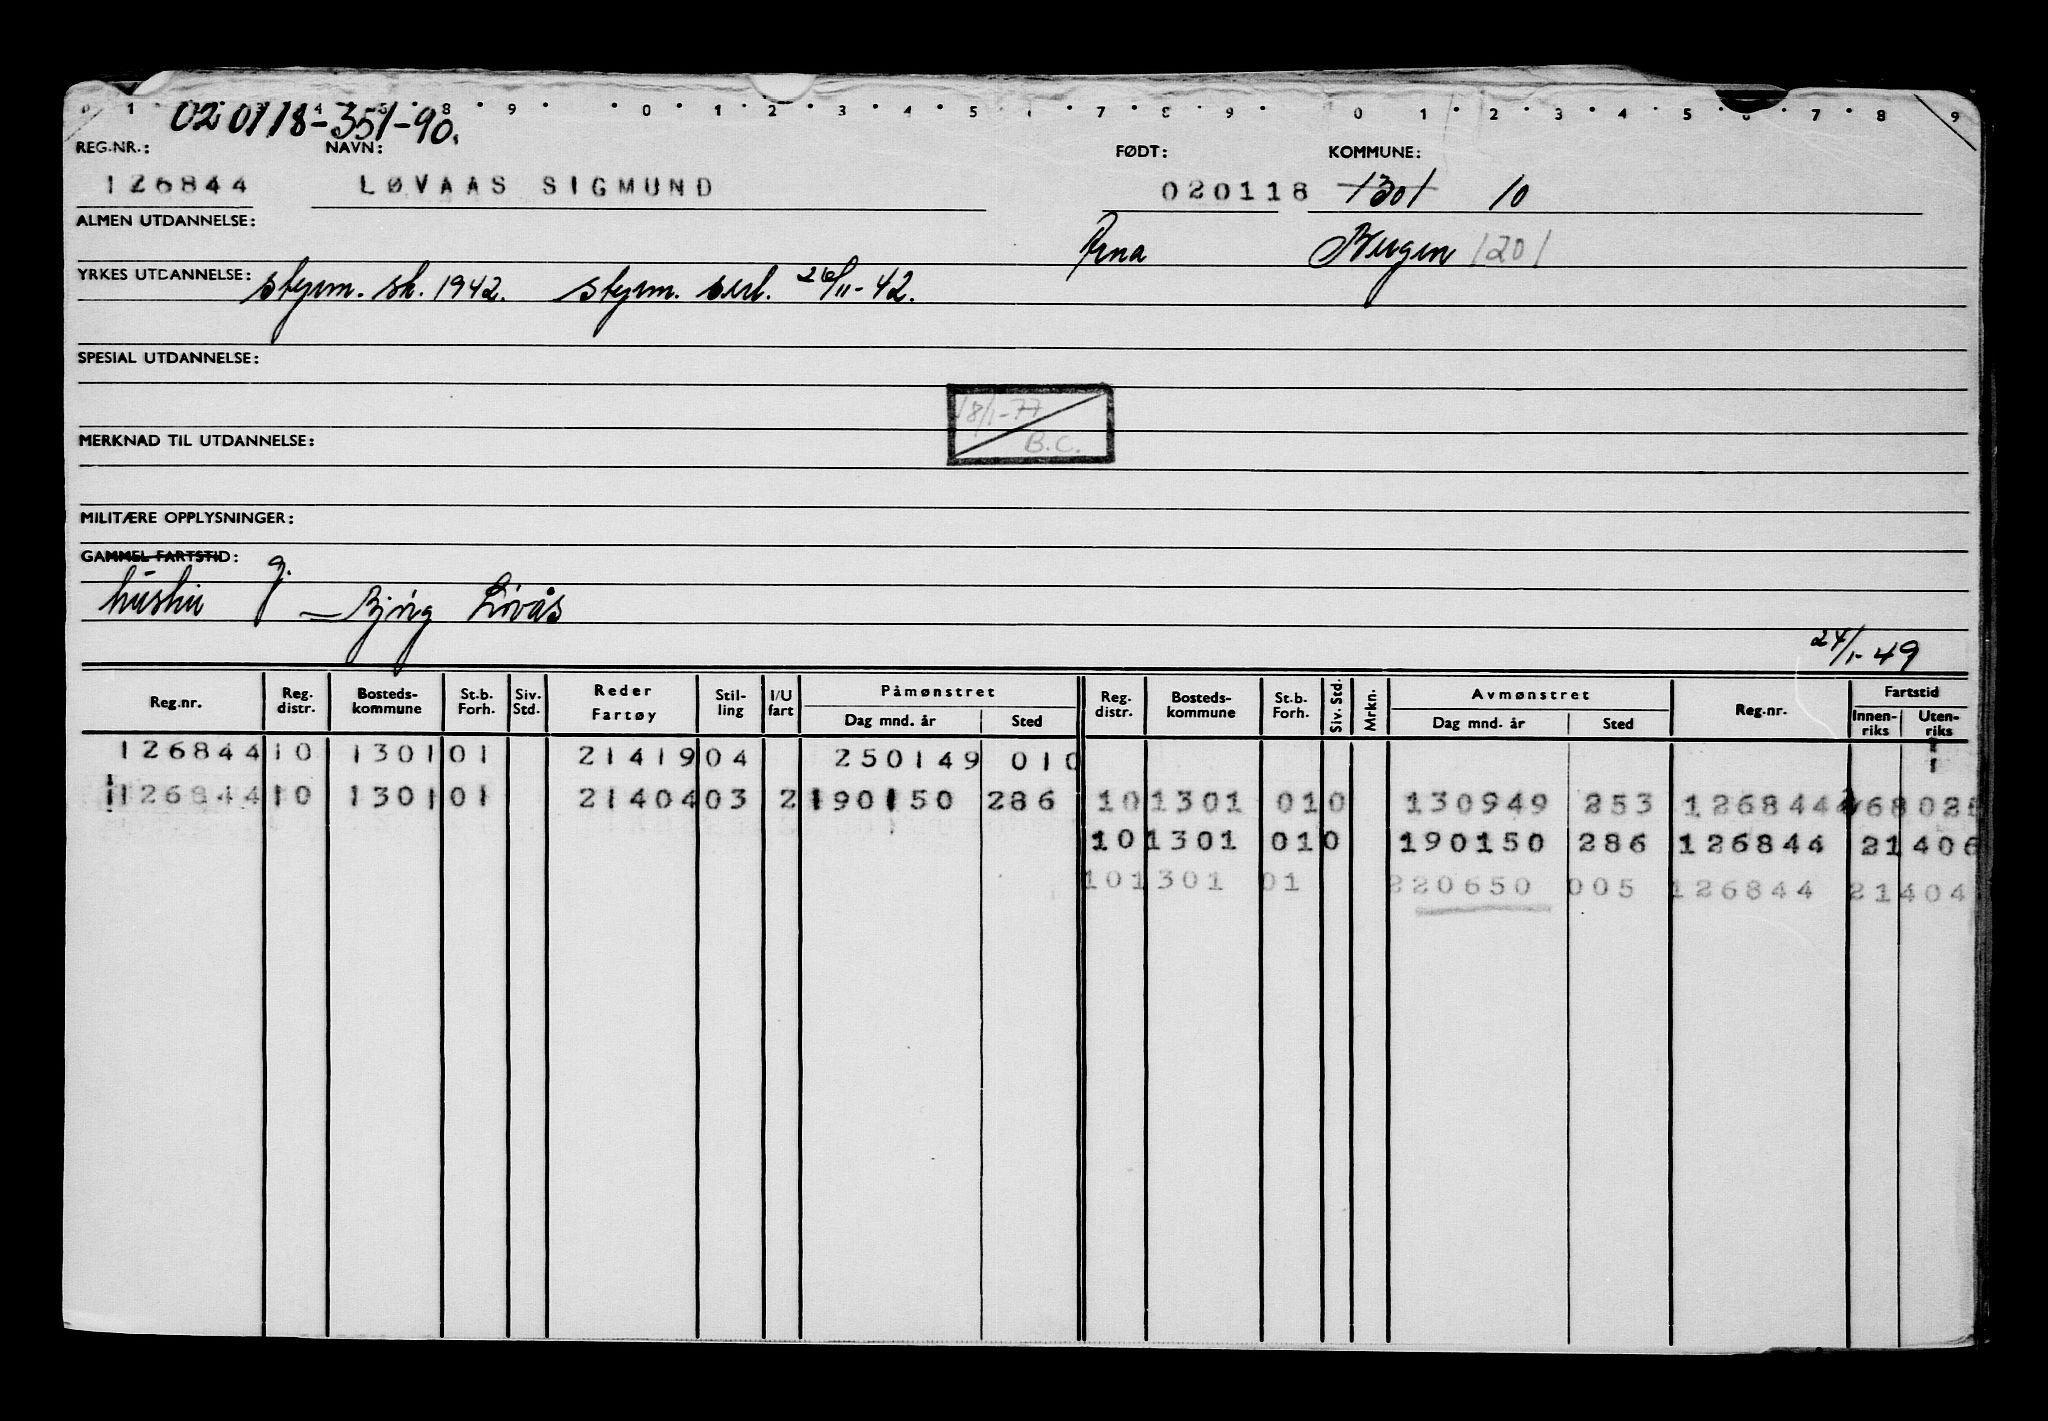 0 1 4 5 8 9 0 1 2 3 4 5 7 8 9 0 1 2 3 4 5 6 7 8 9
020118-351-90.
REG.NR.: NAVN: FØDT: KOMMUNE:
126844 LØVAAS SIGMUND 020118 1301 10
ALMEN UTDANNELSE: Arna Bergen 1201
YRKES UTDANNELSE: styrm. sk. 1942. styrm. serl. 26/11-42.
SPESIAL UTDANNELSE:
18/1-77
B.C.
MERKNAD TIL UTDANNELSE:
MILITÆRE OPPLYSNINGER:
GAMMEL FARTSTID: g.
hustru Løvås
24/1-49
Reg.nr. Reg. distr. Bosteds-kommune St.b. Forh. Siv. Std. Reder Fartøy Stil-ling I/U fart Påmønstret Dag mnd. år Sted Reg. distr. Bosteds-kommune St.b. Forh. Siv. Std. Mrkn. Avmønstret Dag mnd. år Sted Reg.nr. Fartstid Innen-riks Uten-riks
126844 10 1301 01 21419 04 250149 010
126844 10 1301 01 21404 03 2 190150 286 10 1301 01 0 130949 253 126844
10 1301 01 0 190150 286 126844 21406
10 1301 01 220650 005 126844 21404